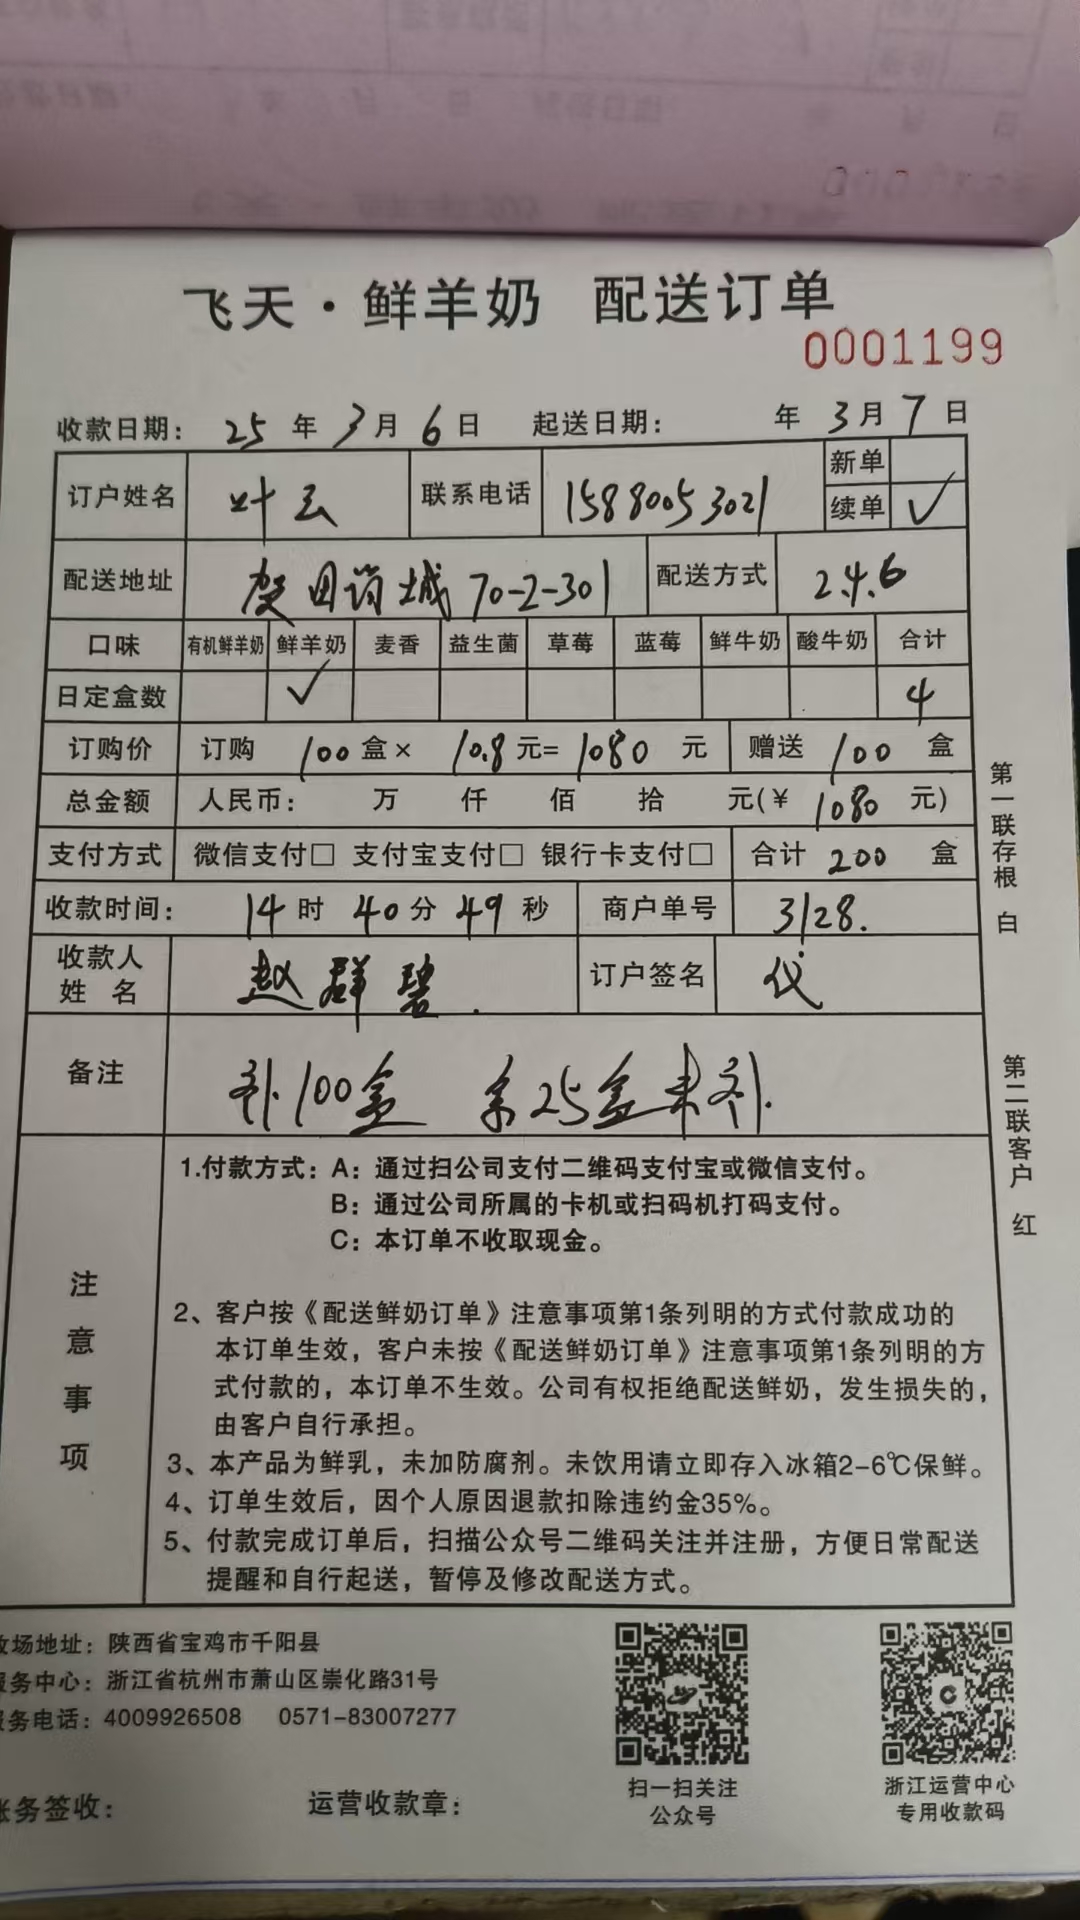 飞天·鲜羊奶 配送订单
0001199
收款日期： 25 年 3 月 6 日 起送日期： 年 3 月 7 日
订户姓名 叶云 联系电话 15880053021 新单
续单 ✓
配送地址 70-2-301 配送方式 2.4.6
口味 有机鲜羊奶 鲜羊奶 麦香 益生菌 草莓 蓝莓 鲜牛奶 酸牛奶 合计
日定盒数 ✓ 4
订购价 订购 100 盒× 10.8 元= 1080 元 赠送 100 盒
总金额 人民币： 万 仟 佰 拾 元(￥ 1080 元)
支付方式 微信支付□ 支付宝支付□ 银行卡支付□ 合计 200 盒
收款时间： 14 时 40 分 49 秒 商户单号 3128.
收款人
姓 名 赵群碧. 订户签名 代
备注 补100盒 余25盒未补.
注意事项
1.付款方式：A：通过扫公司支付二维码支付宝或微信支付。
B：通过公司所属的卡机或扫码机打码支付。
C：本订单不收取现金。
2、客户按《配送鲜奶订单》注意事项第1条列明的方式付款成功的
本订单生效，客户未按《配送鲜奶订单》注意事项第1条列明的方
式付款的，本订单不生效。公司有权拒绝配送鲜奶，发生损失的，
由客户自行承担。
3、本产品为鲜乳，未加防腐剂。未饮用请立即存入冰箱2-6℃保鲜。
4、订单生效后，因个人原因退款扣除违约金35%。
5、付款完成订单后，扫描公众号二维码关注并注册，方便日常配送
提醒和自行起送，暂停及修改配送方式。
第一联存根 白
第二联客户 红
牧场地址：陕西省宝鸡市千阳县
服务中心：浙江省杭州市萧山区崇化路31号
服务电话：4009926508 0571-83007277
账务签收： 运营收款章：
扫一扫关注
公众号
浙江运营中心
专用收款码